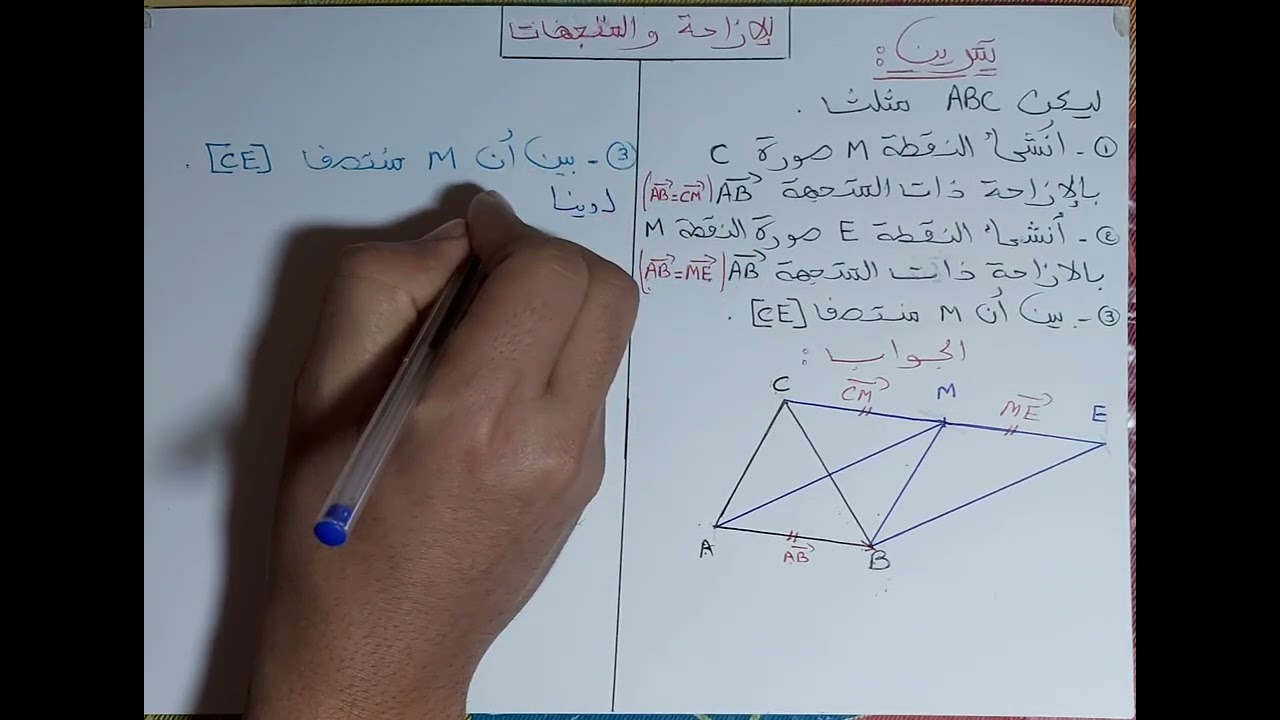 الإزاحة والمتجهات
تمرين :
ليكن ABC مثلث .
① - انشئ النقطة M صورة C
بالإزاحة ذات المتجهة AB (AB = CM)
② - أنشئ النقطة E صورة النقطة M
بالازاحة ذات المتجهة AB (AB = ME)
③ - بين أن M منتصف [CE] .
الجواب :
C CM M ME E
A AB B
③ - بين أن M منتصف [CE] .
لدينا